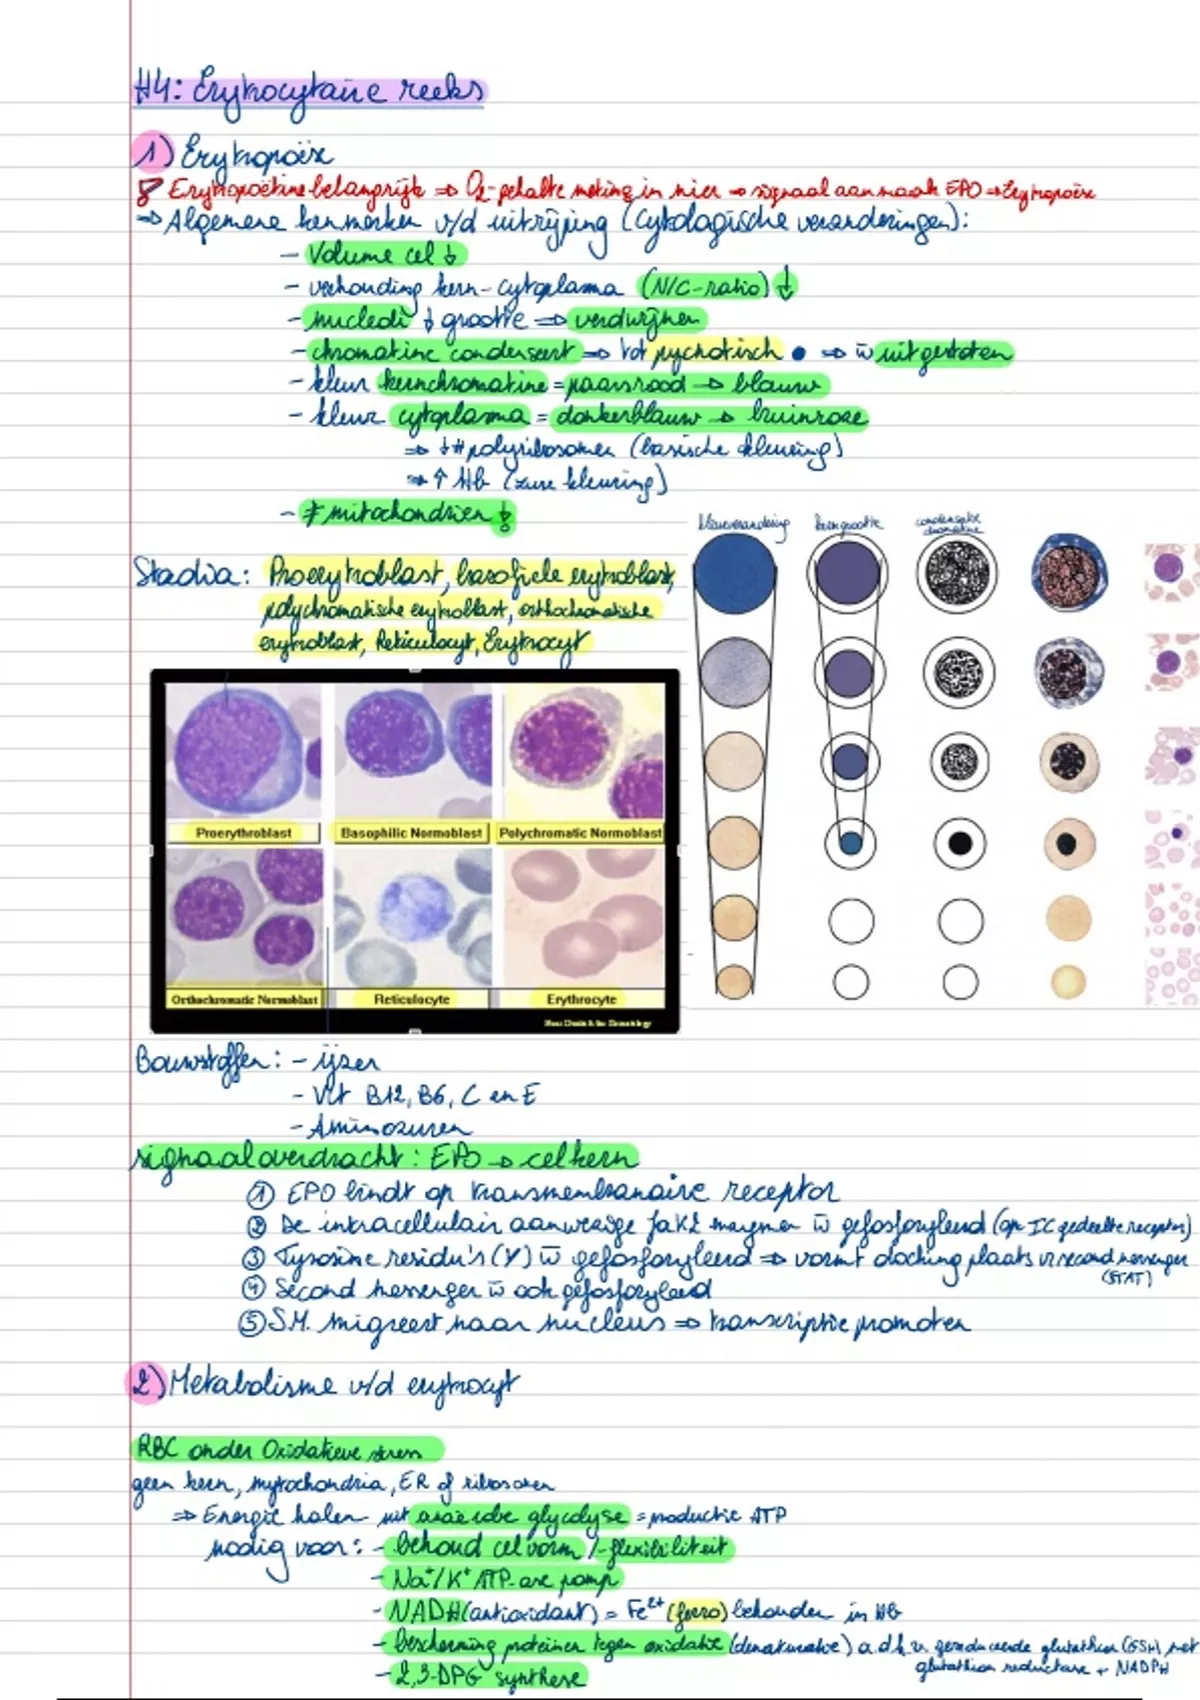 H4: Erytrocytaire reeks
1) Erytropoëse
Erytropoëtine belangrijk => O2-gehalte meting in nier => signaal aanmaak EPO => Erytropoëse
=> Algemene kenmerken v/d uitrijping (cytologische veranderingen):
- Volume cel ↓
- verhouding kern-cytoplasma (N/C-ratio) ↓
- nucleoli ↓ grootte => verdwijnen
- chromatine condenseert => tot pychotisch • => w̄ uitgestoten
- kleur kernchromatine = paarsrood -> blauw
- kleur cytoplasma = donkerblauw -> bruinroze
=> ↓ # polyribosomen (basische kleuring)
=> ↑ Hb (zure kleuring)
- # mitochondriën ↓
kleurverandering kerngrootte condensatie chromatine
Stadia: Proerytroblast, basofiele erytroblast,
polychromatische erytroblast, orthochromatische
erytroblast, Reticulocyt, Erytrocyt
Proerythroblast Basophilic Normoblast Polychromatic Normoblast
Orthochromatic Normoblast Reticulocyte Erythrocyte
Bouwstoffen: - ijzer
- Vit B12, B6, C en E
- Aminozuren
signaaloverdracht: EPO -> celkern
① EPO bindt op transmembranaire receptor
② De intracellulair aanwezige JaK2 enzymen w̄ gefosforyleerd (op IC gedeelte receptor)
③ Tyrosine residu's (Y) w̄ gefosforyleerd => vormt docking plaats v second messenger
(STAT)
④ Second messenger w̄ ook gefosforyleerd
⑤ S.M. migreert naar nucleus => transcriptie promoten
2) Metabolisme v/d erytrocyt
RBC onder Oxidatieve stress
geen kern, mytochondria, ER of ribosomen
=> Energie halen uit anaerobe glycolyse = productie ATP
nodig voor: - behoud celvorm / -flexibiliteit
- Na⁺/K⁺ ATP-ase pomp
- NADH (antioxidant) = Fe²⁺ (ferro) behouden in Hb
- bescherming proteinen tegen oxidatie (denaturatie) a.d.h.v. gereduceerde glutathion (GSH) met
glutathion reductase + NADPH
- 2,3-DPG synthese